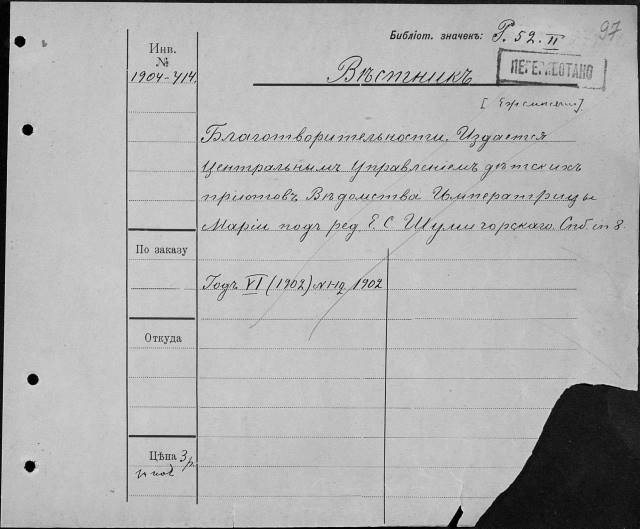 Библіот. значекъ: Р. 52. II
97
Инв.
№
1904-414.
ПЕРЕРАБОТАНО
Вѣстникъ
[Ежемѣсячн]
Благотворительности. Издается
Центральнымъ Управленіемъ дѣтскихъ
пріютовъ Вѣдомства Императрицы
Маріи подъ ред. Е. С. Шумигорскаго. Спб. in 8.
По заказу
Годъ VI (1902) № 1-12 1902
Откуда
Цѣна 3 р.